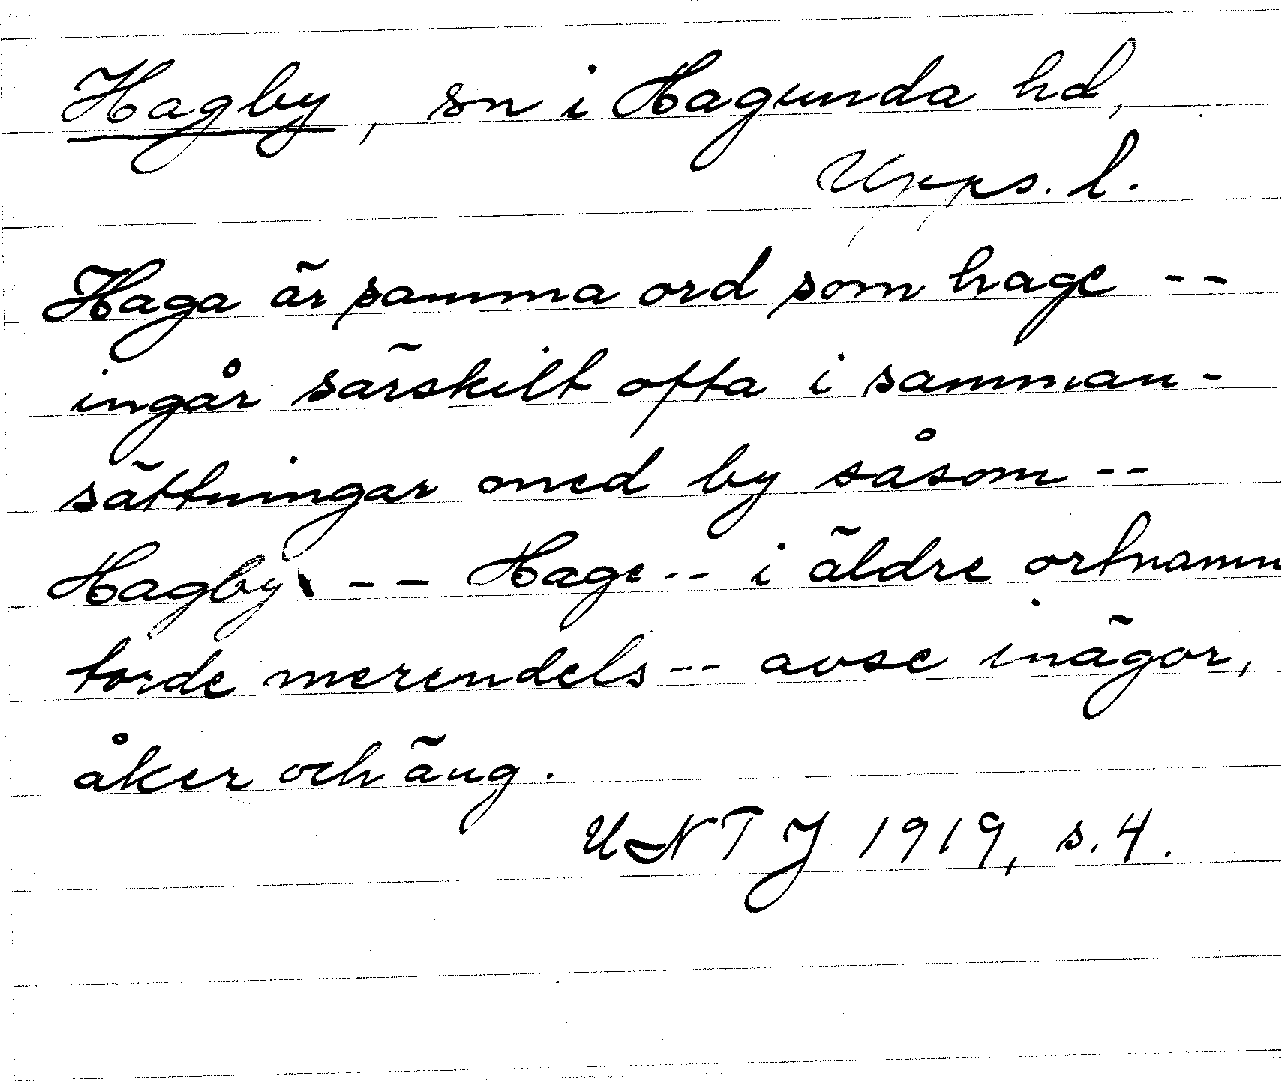 Hagby, sn i Hagunda hd,
Upps. l.
Haga är samma ord som hage --
ingår särskilt ofta i samman-
sättningar med by såsom --
Hagby -- Hage -- i äldre ortnamn
torde merendels -- avse inägor,
åker och äng.
UNTJ 1919, s. 4.